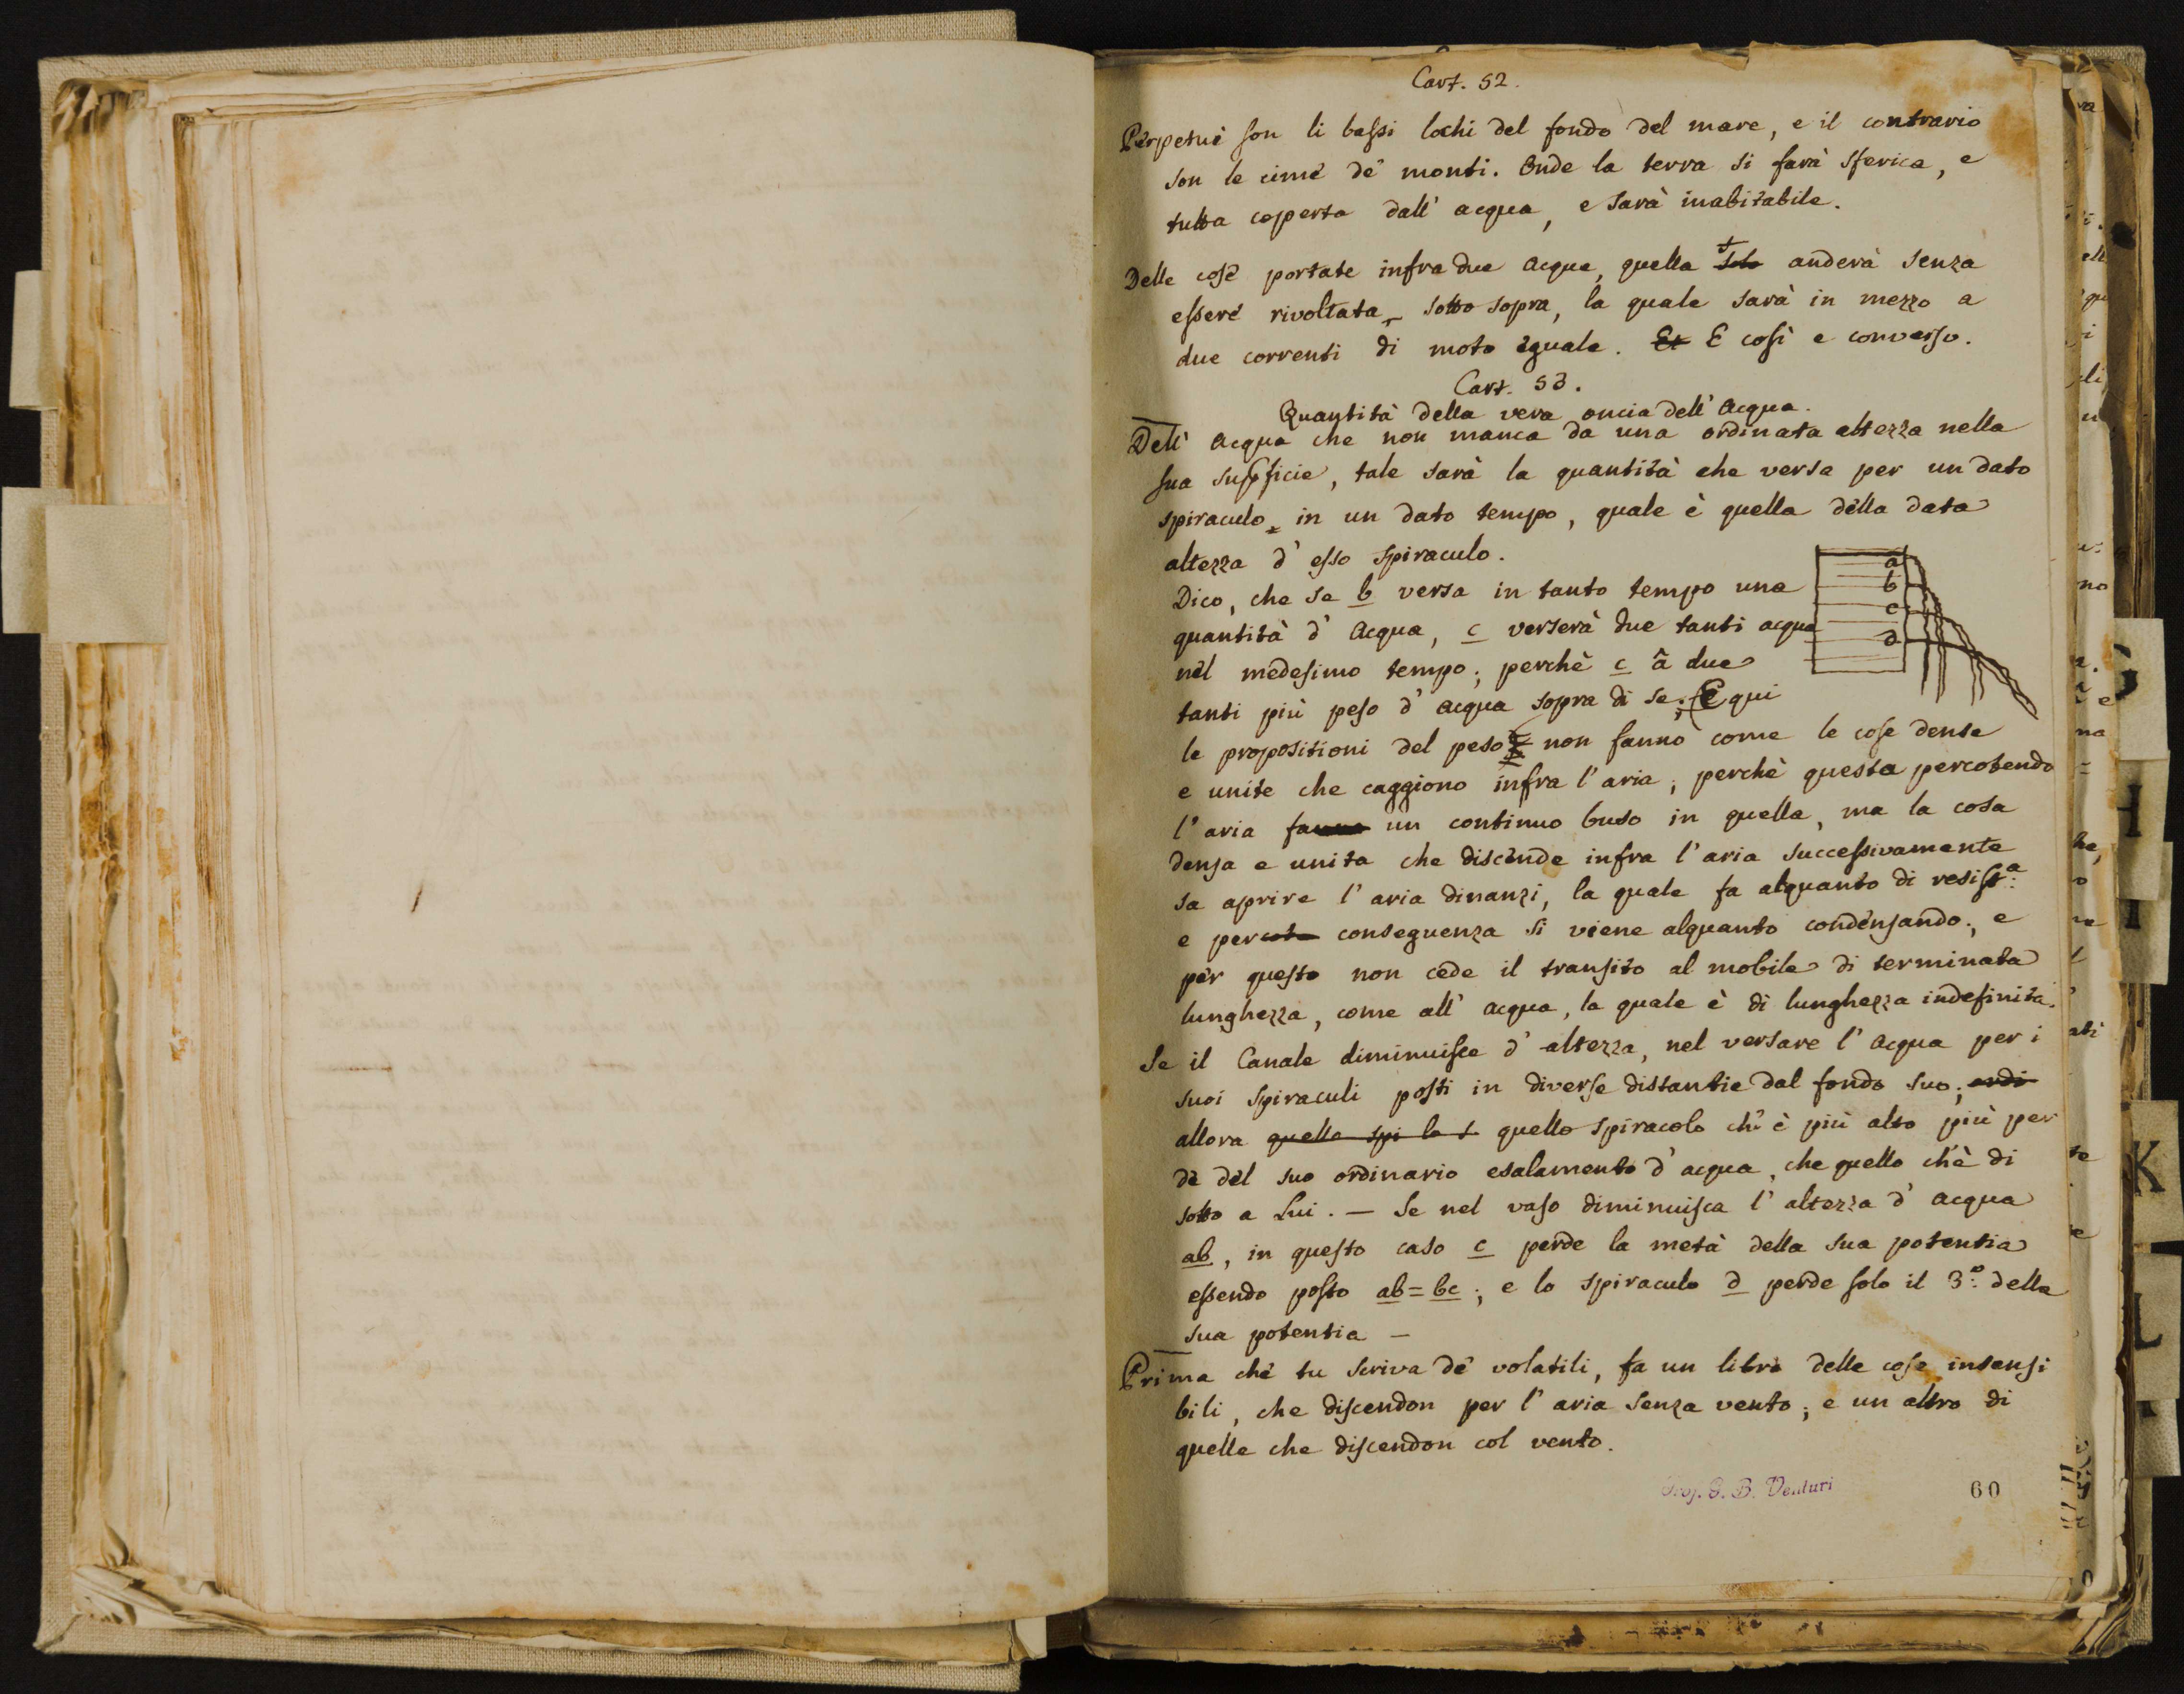 Cart. 52.
Perpetui son li bassi lochi del fondo del mare, e il contrario
son le cime de' monti. Onde la terra si farà sferica, e
tutta coperta dall' acqua, e sarà inabitabile.
Delle cose portate infra due acque, quella anderà senza
essere rivoltata sotto sopra, la quale sarà in mezzo a
due correnti di moto eguale. Et E così e converso.
Cart. 53.
Quantità della vera oncia dell' Acqua.
Dell' Acqua che non manca da una ordinata altezza nella
sua supficie, tale sarà la quantità che versa per un dato
spiraculo in un dato tempo, quale è quella della data
altezza d' esso spiraculo.
Dico, che se b versa in tanto tempo una
quantità d' Acqua, c verserà due tanti acqua
nel medesimo tempo; perchè c â due
tanti più peso d' acqua sopra di se; E qui
le propositioni del peso non fanno come le cose dense
e unite che caggiono infra l' aria; perchè questa percotendo
l' aria fanno un continuo buso in quella, ma la cosa
densa e unita che discende infra l' aria successivamente
sa aprire l' aria dinanzi, la quale fa alquanto di resist:a
e per conseguenza si viene alquanto condensando; e
per questo non cede il transito al mobile di terminata
lunghezza, come all' acqua, la quale è di lunghezza indefinita.
Se il Canale diminuisce d' altezza, nel versare l' Acqua per i
suoi spiraculi posti in diverse distantie dal fondo suo;
allora quello spi lo s quello spiracolo ch' è più alto più per
de del suo ordinario esalamento d' acqua, che quello ch'è di
sotto a Lui. — Se nel vaso diminuisca l' altezza d' acqua
ab, in questo caso c perde la metà della sua potentia
essendo posto ab=bc; e lo spiraculo d perde solo il 3:o della
sua potentia —
Prima che tu scriva de' volatili, fa un libro delle cose insensi
bili, che discendon per l' aria senza vento; e un altro di
quelle che discendon col vento.
a
b
c
d
Prof. G. B. Venturi
60
K
L